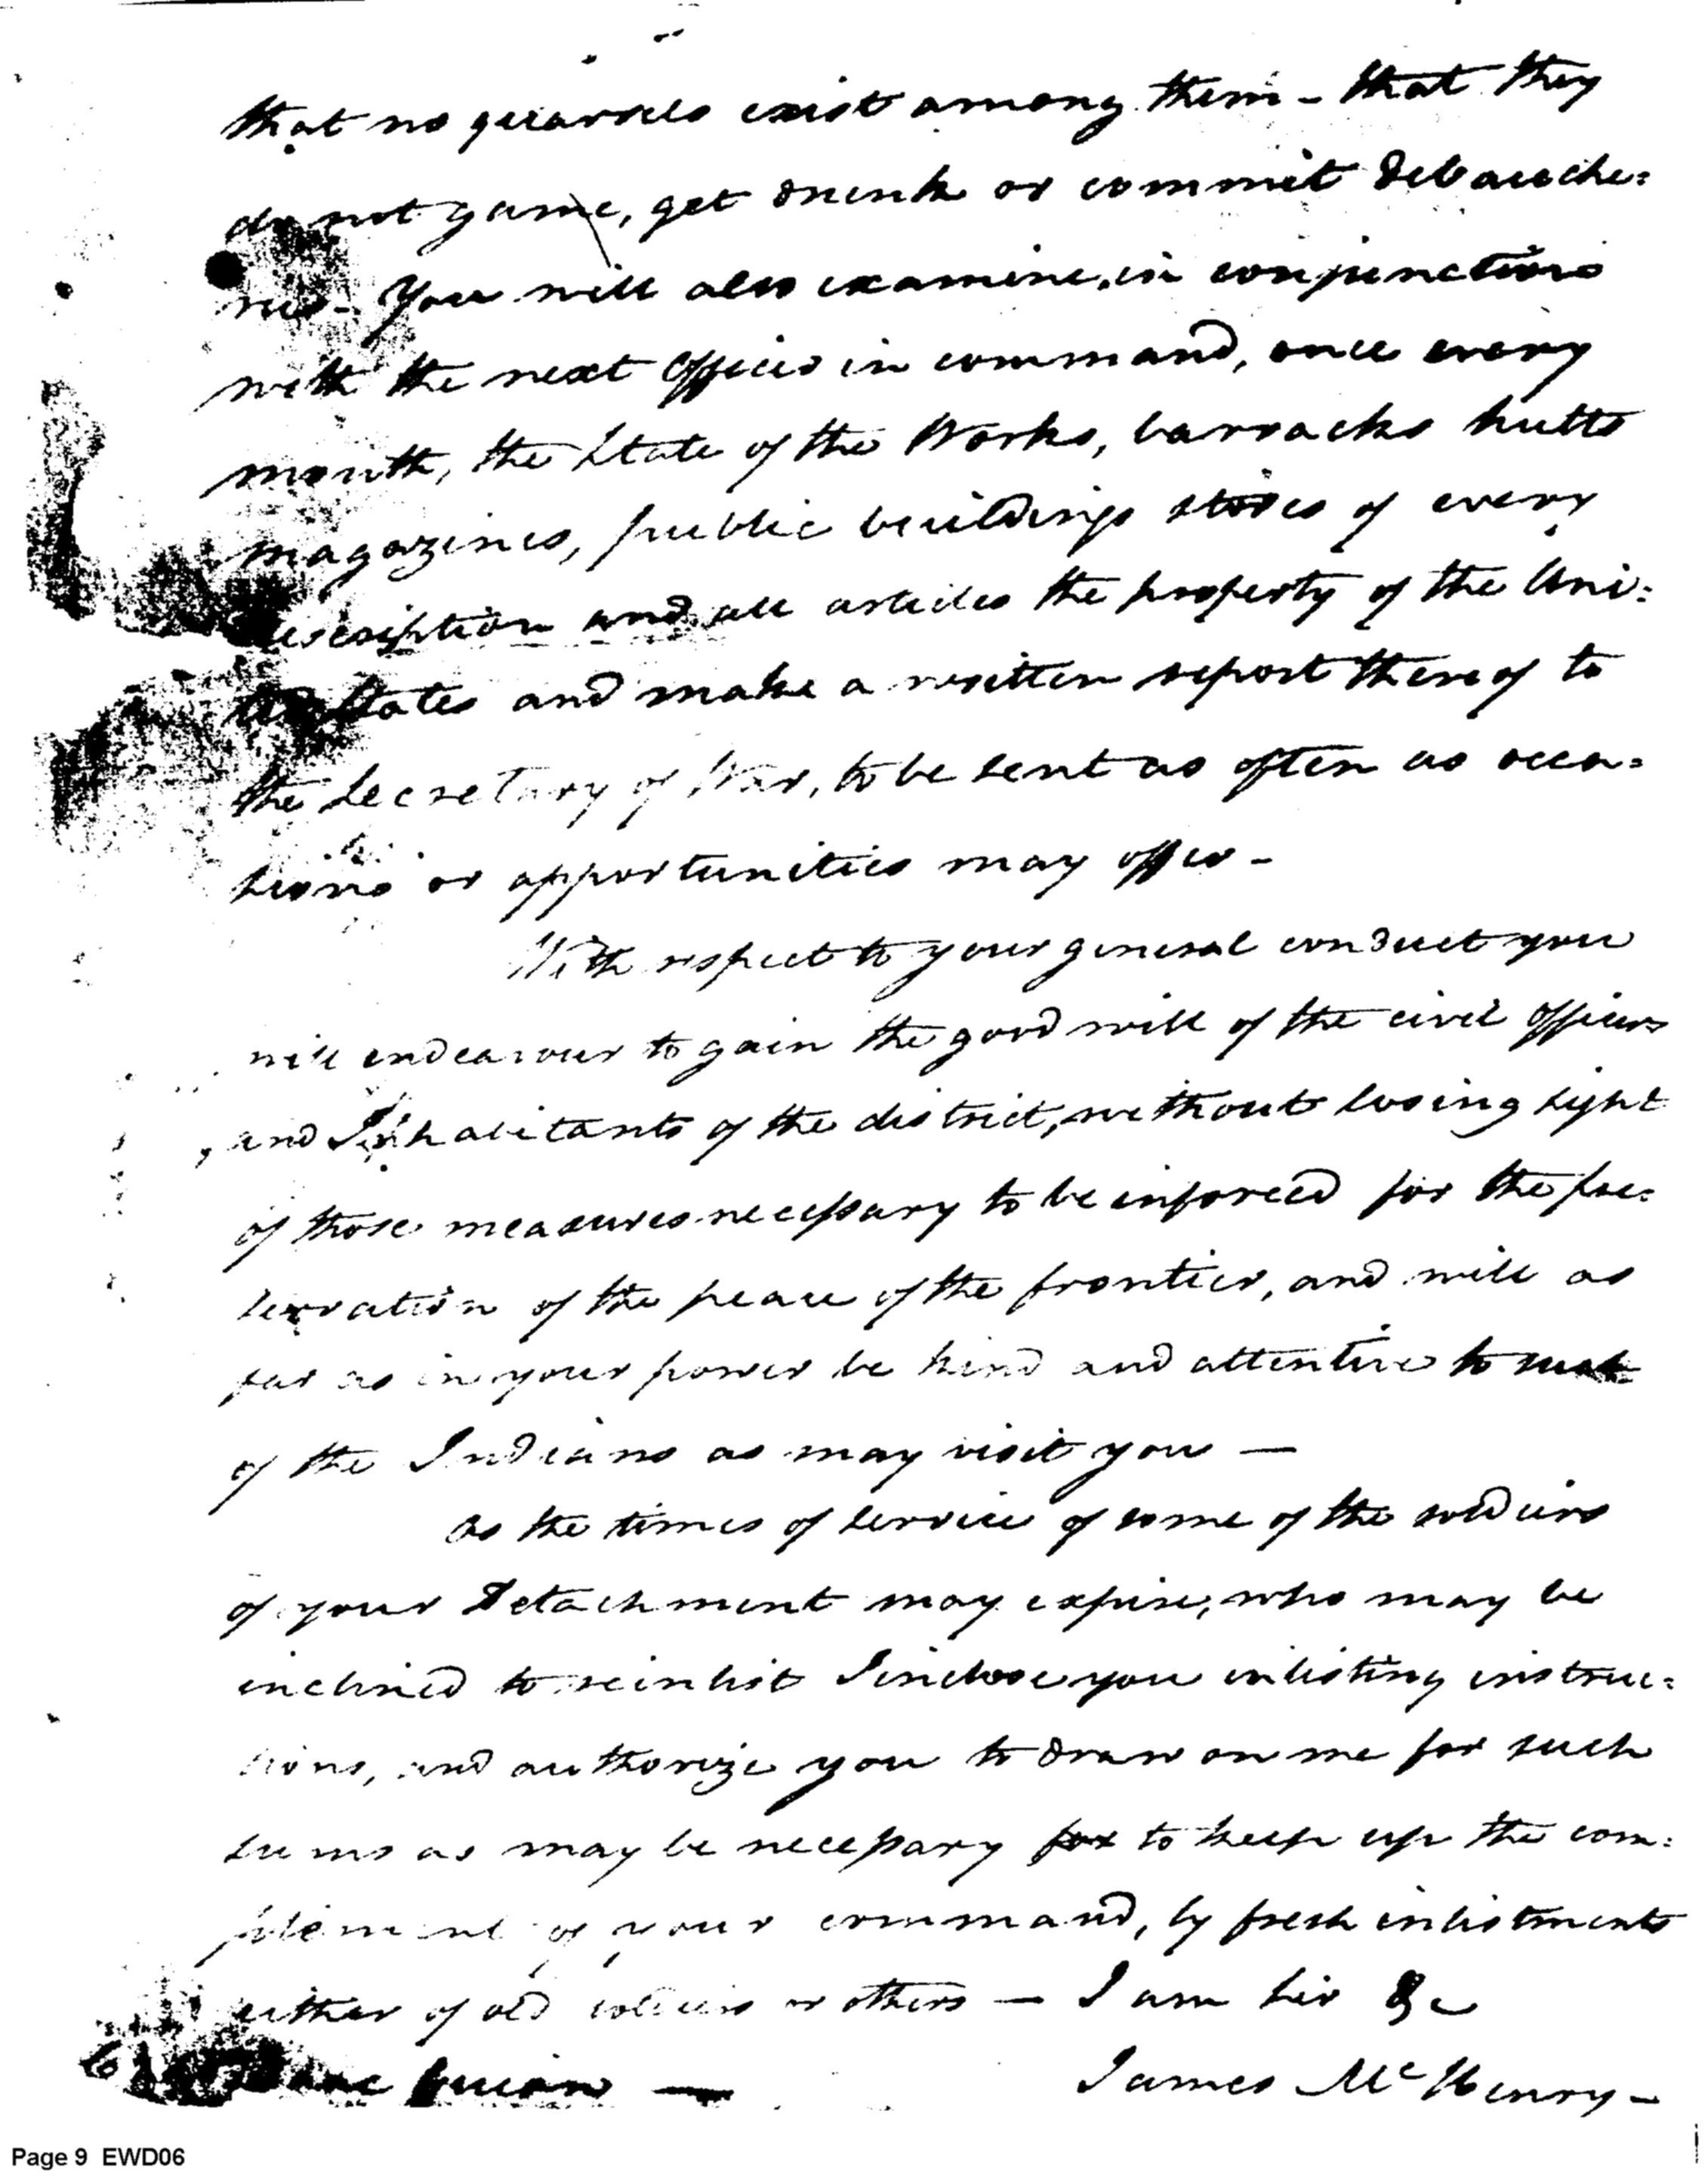 that no quarrels exist among them - that they
do not game, get drunk or commit debauche=
ries - You will also examine, in conjunction
with the next officer in command, once every
month, the State of the Works, barracks hutts
magazines, public buildings stores of every
description and all articles the property of the Uni=
ted States and make a written report thereof to
the Secretary of War, to be sent as often as occa=
sions or opportunities may offer -
With respect to your general conduct you
will endeavour to gain the good will of the civil officers
and Inhabitants of the district, without losing sight
of those measures necessary to be inforced for the pre=
servation of the peace of the frontier, and will as
far as in your power be kind and attentive to such
of the Indians as may visit you —
As the times of service of some of the soldiers
of your Detachment may expire, who may be
inclined to reinlist I inclose you inlisting instruc=
tions, and authorize you to draw on me for such
sums as may be necessary for to keep up the com=
plement of your command, by fresh inlistments
either of old soldiers or others — I am Sir &c
Guion — James McHenry -
Page 9 EWD06